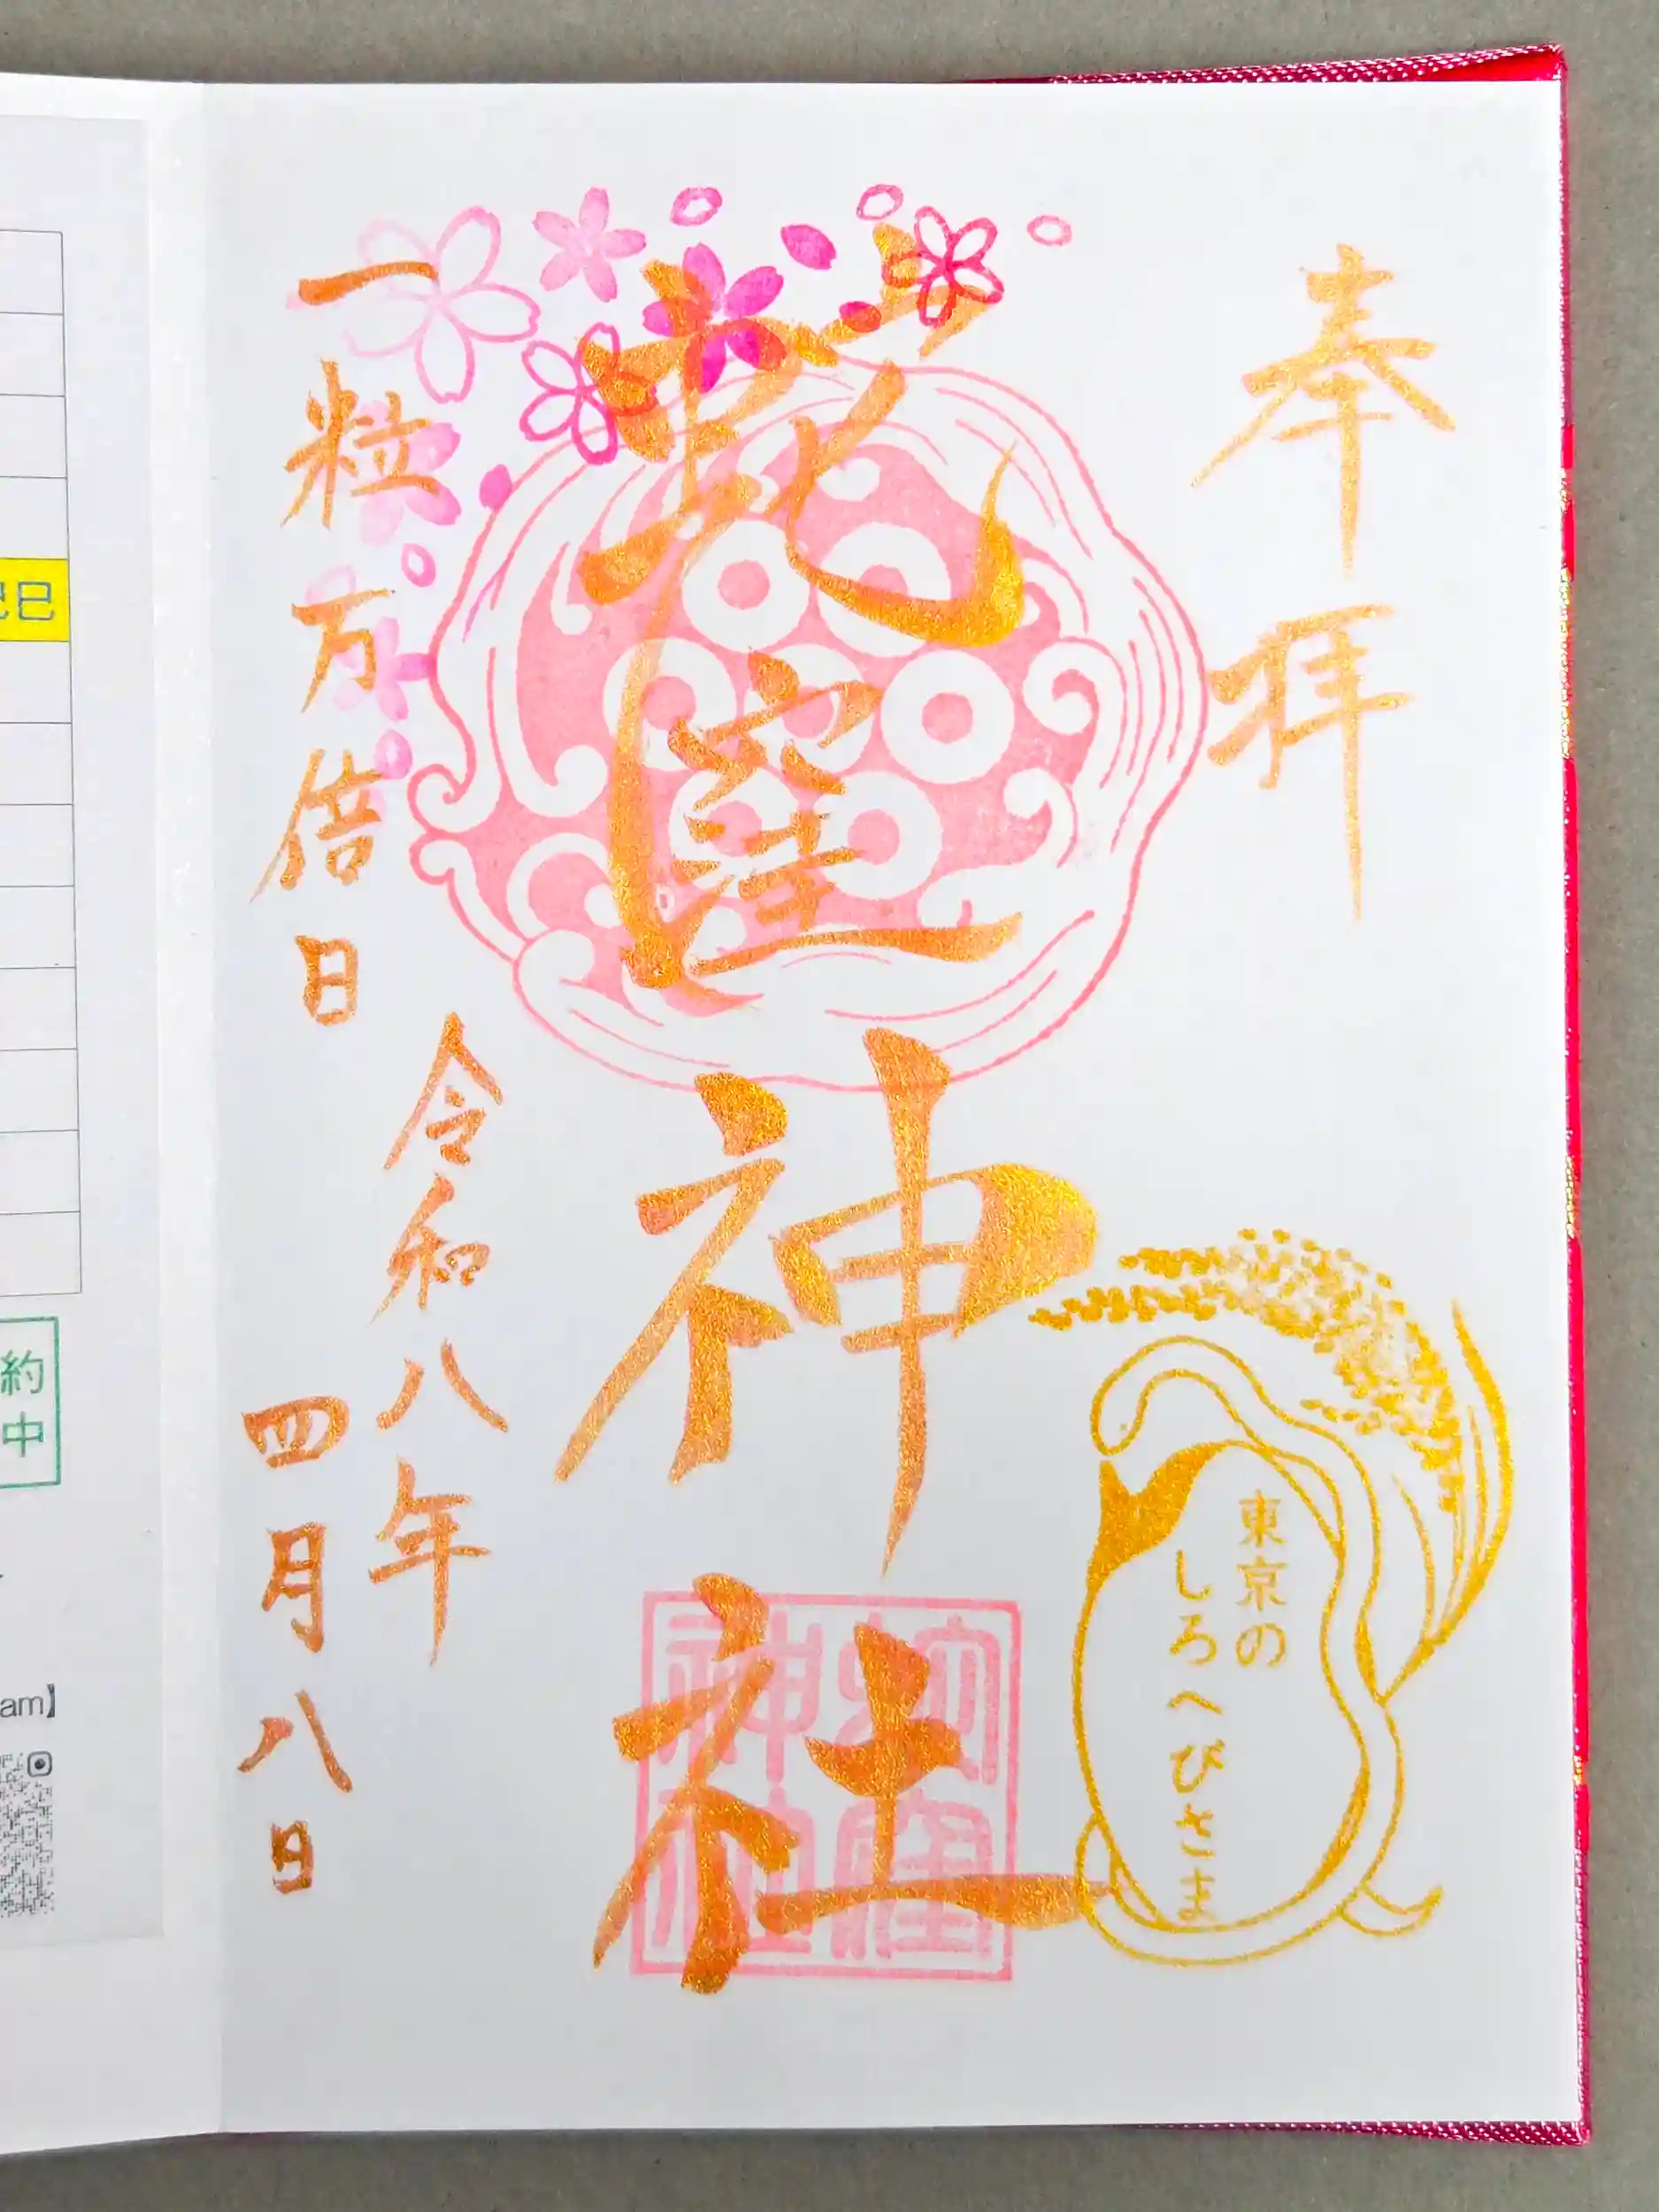 奉拝
東京の
しろへびさま
蛇窪神社
蛇窪
神社
一粒万倍日
令和八年
四月八日
巳
約
中
am】